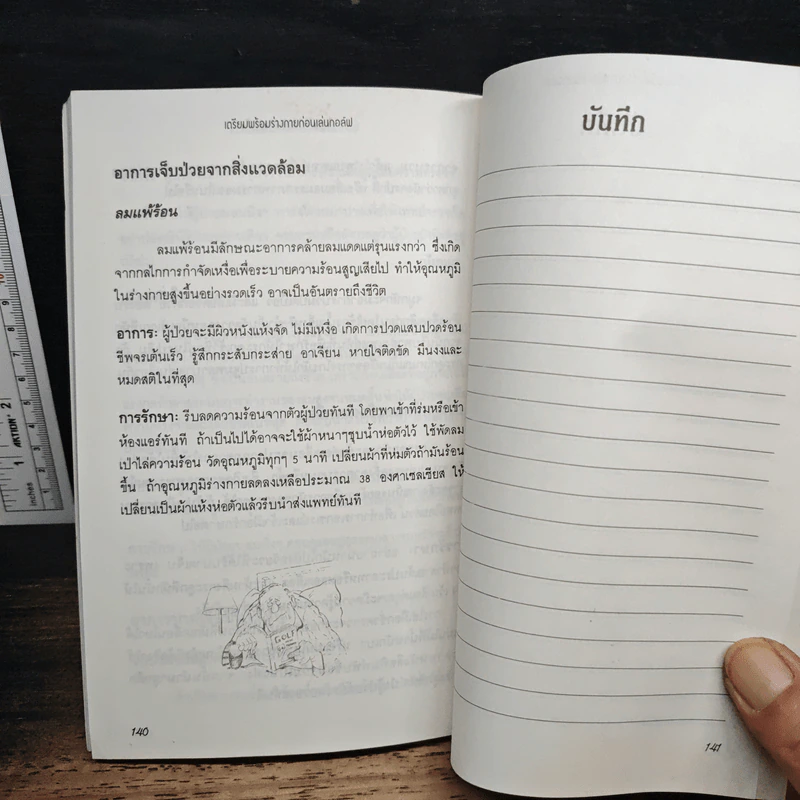 เตรียมพร้อมร่างกายก่อนเล่นกอล์ฟ
อาการเจ็บป่วยจากสิ่งแวดล้อม
ลมแพ้ร้อน
ลมแพ้ร้อนมีลักษณะอาการคล้ายลมแดดแต่รุนแรงกว่า ซึ่งเกิด
จากกลไกการกำจัดเหงื่อเพื่อระบายความร้อนสูญเสียไป ทำให้อุณหภูมิ
ในร่างกายสูงขึ้นอย่างรวดเร็ว อาจเป็นอันตรายถึงชีวิต
อาการ: ผู้ป่วยจะมีผิวหนังแห้งจัด ไม่มีเหงื่อ เกิดการปวดแสบปวดร้อน
ชีพจรเต้นเร็ว รู้สึกกระสับกระส่าย อาเจียน หายใจติดขัด มึนงงและ
หมดสติในที่สุด
การรักษา: รีบลดความร้อนจากตัวผู้ป่วยทันที โดยพาเข้าที่ร่มหรือเข้า
ห้องแอร์ทันที ถ้าเป็นไปได้อาจจะใช้ผ้าหนาๆชุบน้ำห่อตัวไว้ ใช้พัดลม
เป่าไล่ความร้อน วัดอุณหภูมิทุกๆ 5 นาที เปลี่ยนผ้าที่ห่มตัวถ้ามันร้อน
ขึ้น ถ้าอุณหภูมิร่างกายลดลงเหลือประมาณ 38 องศาเซลเซียส ให้
เปลี่ยนเป็นผ้าแห้งห่อตัวแล้วรีบนำส่งแพทย์ทันที
GOLF
140
บันทึก
141
10
9
8
7
6
5
4
3
2
1
2
1
MAKTION
inches